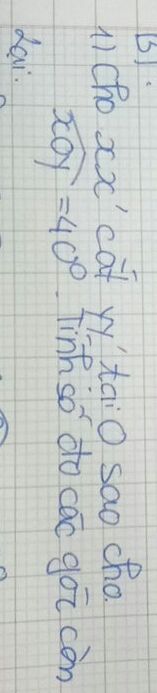 BJ:
1) Cho xx' cắt yy' tại O sao cho.
xOy = 40°. Tính số đo các góc còn
lại.